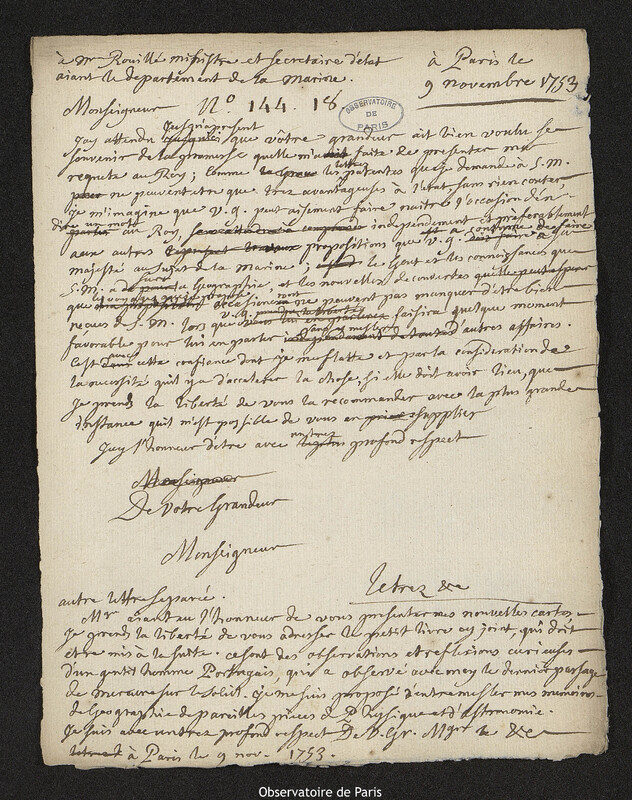 à Mr Rouillé ministre et secretaire d'etat
aiant le departement de la Marine.
à Paris le
9 novembre 1753
Monseigneur N° 144. 18
OBSERVATOIRE DE PARIS
J'ay attendu jusqu'à present que vôtre grandeur ait bien voulu se
souvenir de la promesse qu'elle m'avoit faite de presenter ma
requete au Roy; comme les lettres patentes que je demande à S. M.
ne peuvent etre que trez avantageuses à l'etat, sans rien couter,
je m'imagine que V. G. peut aisement faire naitre l'occasion d'en
dire un mot au Roy, independement et preferablement
aux autres propositions que V. G. est a coutume de faire à sa
majesté au sujet de la Marine; le gout et les connoissances que
S. M. a sur la Geographie, et les nouvelles decouvertes qu'elle peut esperer
que ne peuvent pas manquer d'etre bien
recues de S. M. lors que V. G. saisira quelque moment
favorable pour lui en parler autres affaires.
C'est dans cette confiance dont je me flatte et par la consideration de
la necessité qu'il y a d'accelerer la chose, si elle doit avoir lieu, que
je prends la liberté de vous la recommander avec la plus grande
instance qu'il m'est possible de vous en supplier
J'ay l'honneur d'etre avec un trez profond respect
Monseigneur
De Votre Grandeur
Monseigneur
Le trez &c
autre lettre separée.
Mr aiant eu l'honneur de vous presenter mes nouvelles cartes
je prends la liberté de vous adresser le petit livre cy joint, qui doit
etre mis à la suitte. ce sont des observations et reflexions curieuses
d'un gentilhomme Portugais, qui a observé avec moy le dernier passage
de mercure sur le Soleil. je me suis proposé d'entremesler mes memoires
de Geographie de pareilles pieces de Physique et d'astronomie.
Je suis avec un trez profond respect De V. Gr. Mgr le &c
à Paris le 9 nov. 1753.
Observatoire de Paris